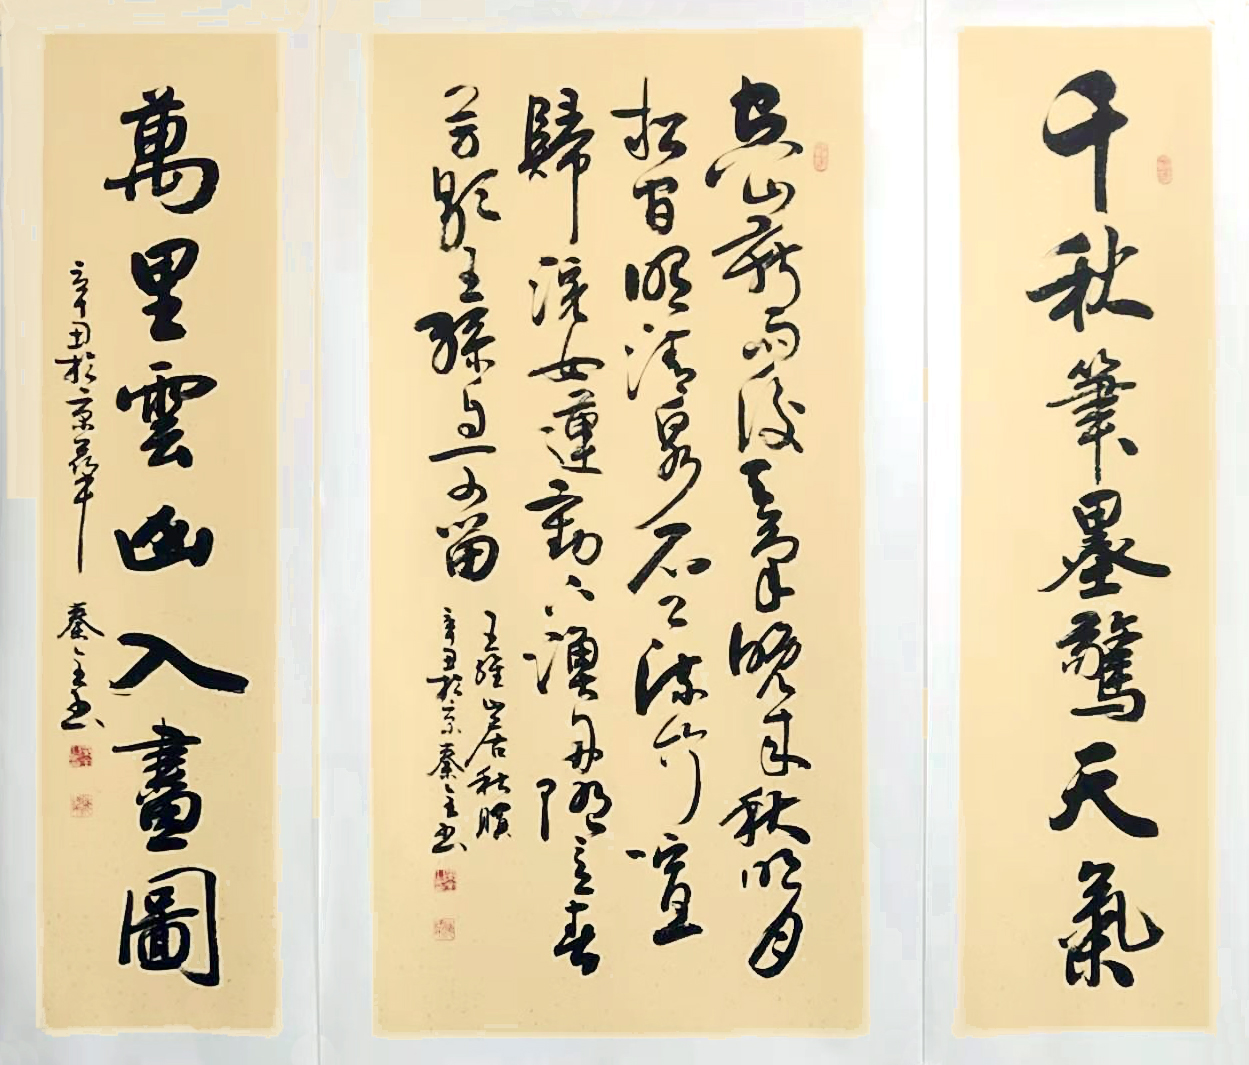 千秋筆墨驚天氣
空山新雨後天氣晚來秋明月
松間照清泉石上流竹喧
歸浣女蓮動下漁舟隨意春
芳歇王孫自可留
王維山居秋暝
辛丑於京秦書
萬里雲幽入畫圖
辛丑於京華
秦書